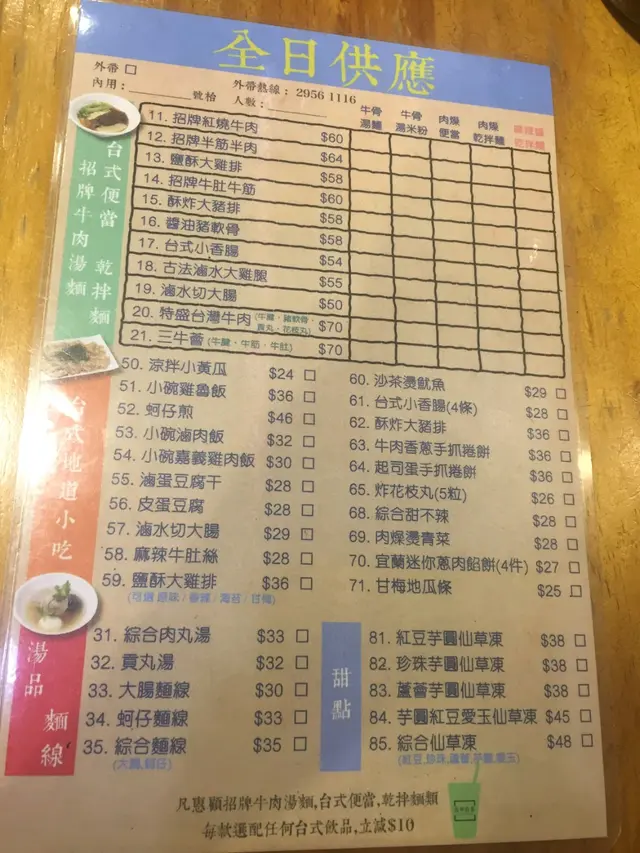 全日供應
外帶 □
外帶熱線：2956 1116
內用：________號枱 人數：________
牛骨湯麵
牛骨湯米粉
肉燥便當
肉燥乾拌麵
乾拌麵
台式便當 乾拌麵
招牌牛肉湯麵
11. 招牌紅燒牛肉 $60
12. 招牌半筋半肉 $64
13. 鹽酥大雞排 $58
14. 招牌牛肚牛筋 $60
15. 酥炸大豬排 $58
16. 醬油豬軟骨 $58
17. 台式小香腸 $54
18. 古法滷水大雞腿 $55
19. 滷水切大腸 $50
20. 特盛台灣牛肉 (牛腱，豬軟骨，貢丸，花枝丸) $70
21. 三牛薈 (牛腱、牛筋、牛肚) $70
台式地道小吃
50. 涼拌小黃瓜 $24 □
51. 小碗雞魯飯 $36 □
52. 蚵仔煎 $46 □
53. 小碗滷肉飯 $32 □
54. 小碗嘉義雞肉飯 $30 □
55. 滷蛋豆腐干 $28 □
56. 皮蛋豆腐 $28 □
57. 滷水切大腸 $29 □
58. 麻辣牛肚絲 $28 □
59. 鹽酥大雞排 $36 □
(可選原味/香辣/海苔/甘梅)
60. 沙茶燙魷魚 $29 □
61. 台式小香腸(4條) $28 □
62. 酥炸大豬排 $36 □
63. 牛肉香蔥手抓捲餅 $36 □
64. 起司蛋手抓捲餅 $36 □
65. 炸花枝丸(5粒) $26 □
68. 綜合甜不辣 $28 □
69. 肉燥燙青菜 $28 □
70. 宜蘭迷你蔥肉餡餅(4件) $27 □
71. 甘梅地瓜條 $25 □
湯品 麵線
31. 綜合肉丸湯 $33 □
32. 貢丸湯 $32 □
33. 大腸麵線 $30 □
34. 蚵仔麵線 $33 □
35. 綜合麵線 $35 □
(大腸,蚵仔)
甜點
81. 紅豆芋圓仙草凍 $38 □
82. 珍珠芋圓仙草凍 $38 □
83. 蘆薈芋圓仙草凍 $38 □
84. 芋圓紅豆愛玉仙草凍 $45 □
85. 綜合仙草凍 $48 □
(紅豆,珍珠,蘆薈,芋圓,愛玉)
凡惠顧招牌牛肉湯麵,台式便當,乾拌麵類
每款選配任何台式飲品,立減$10